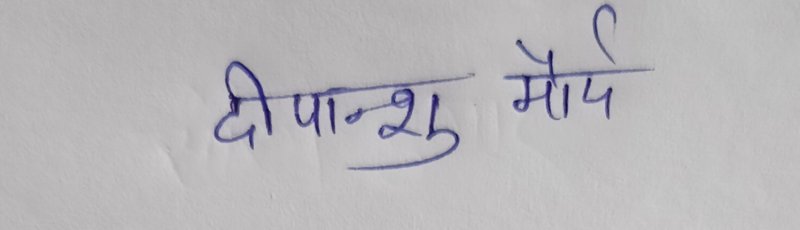 दीपान्शु मौर्य